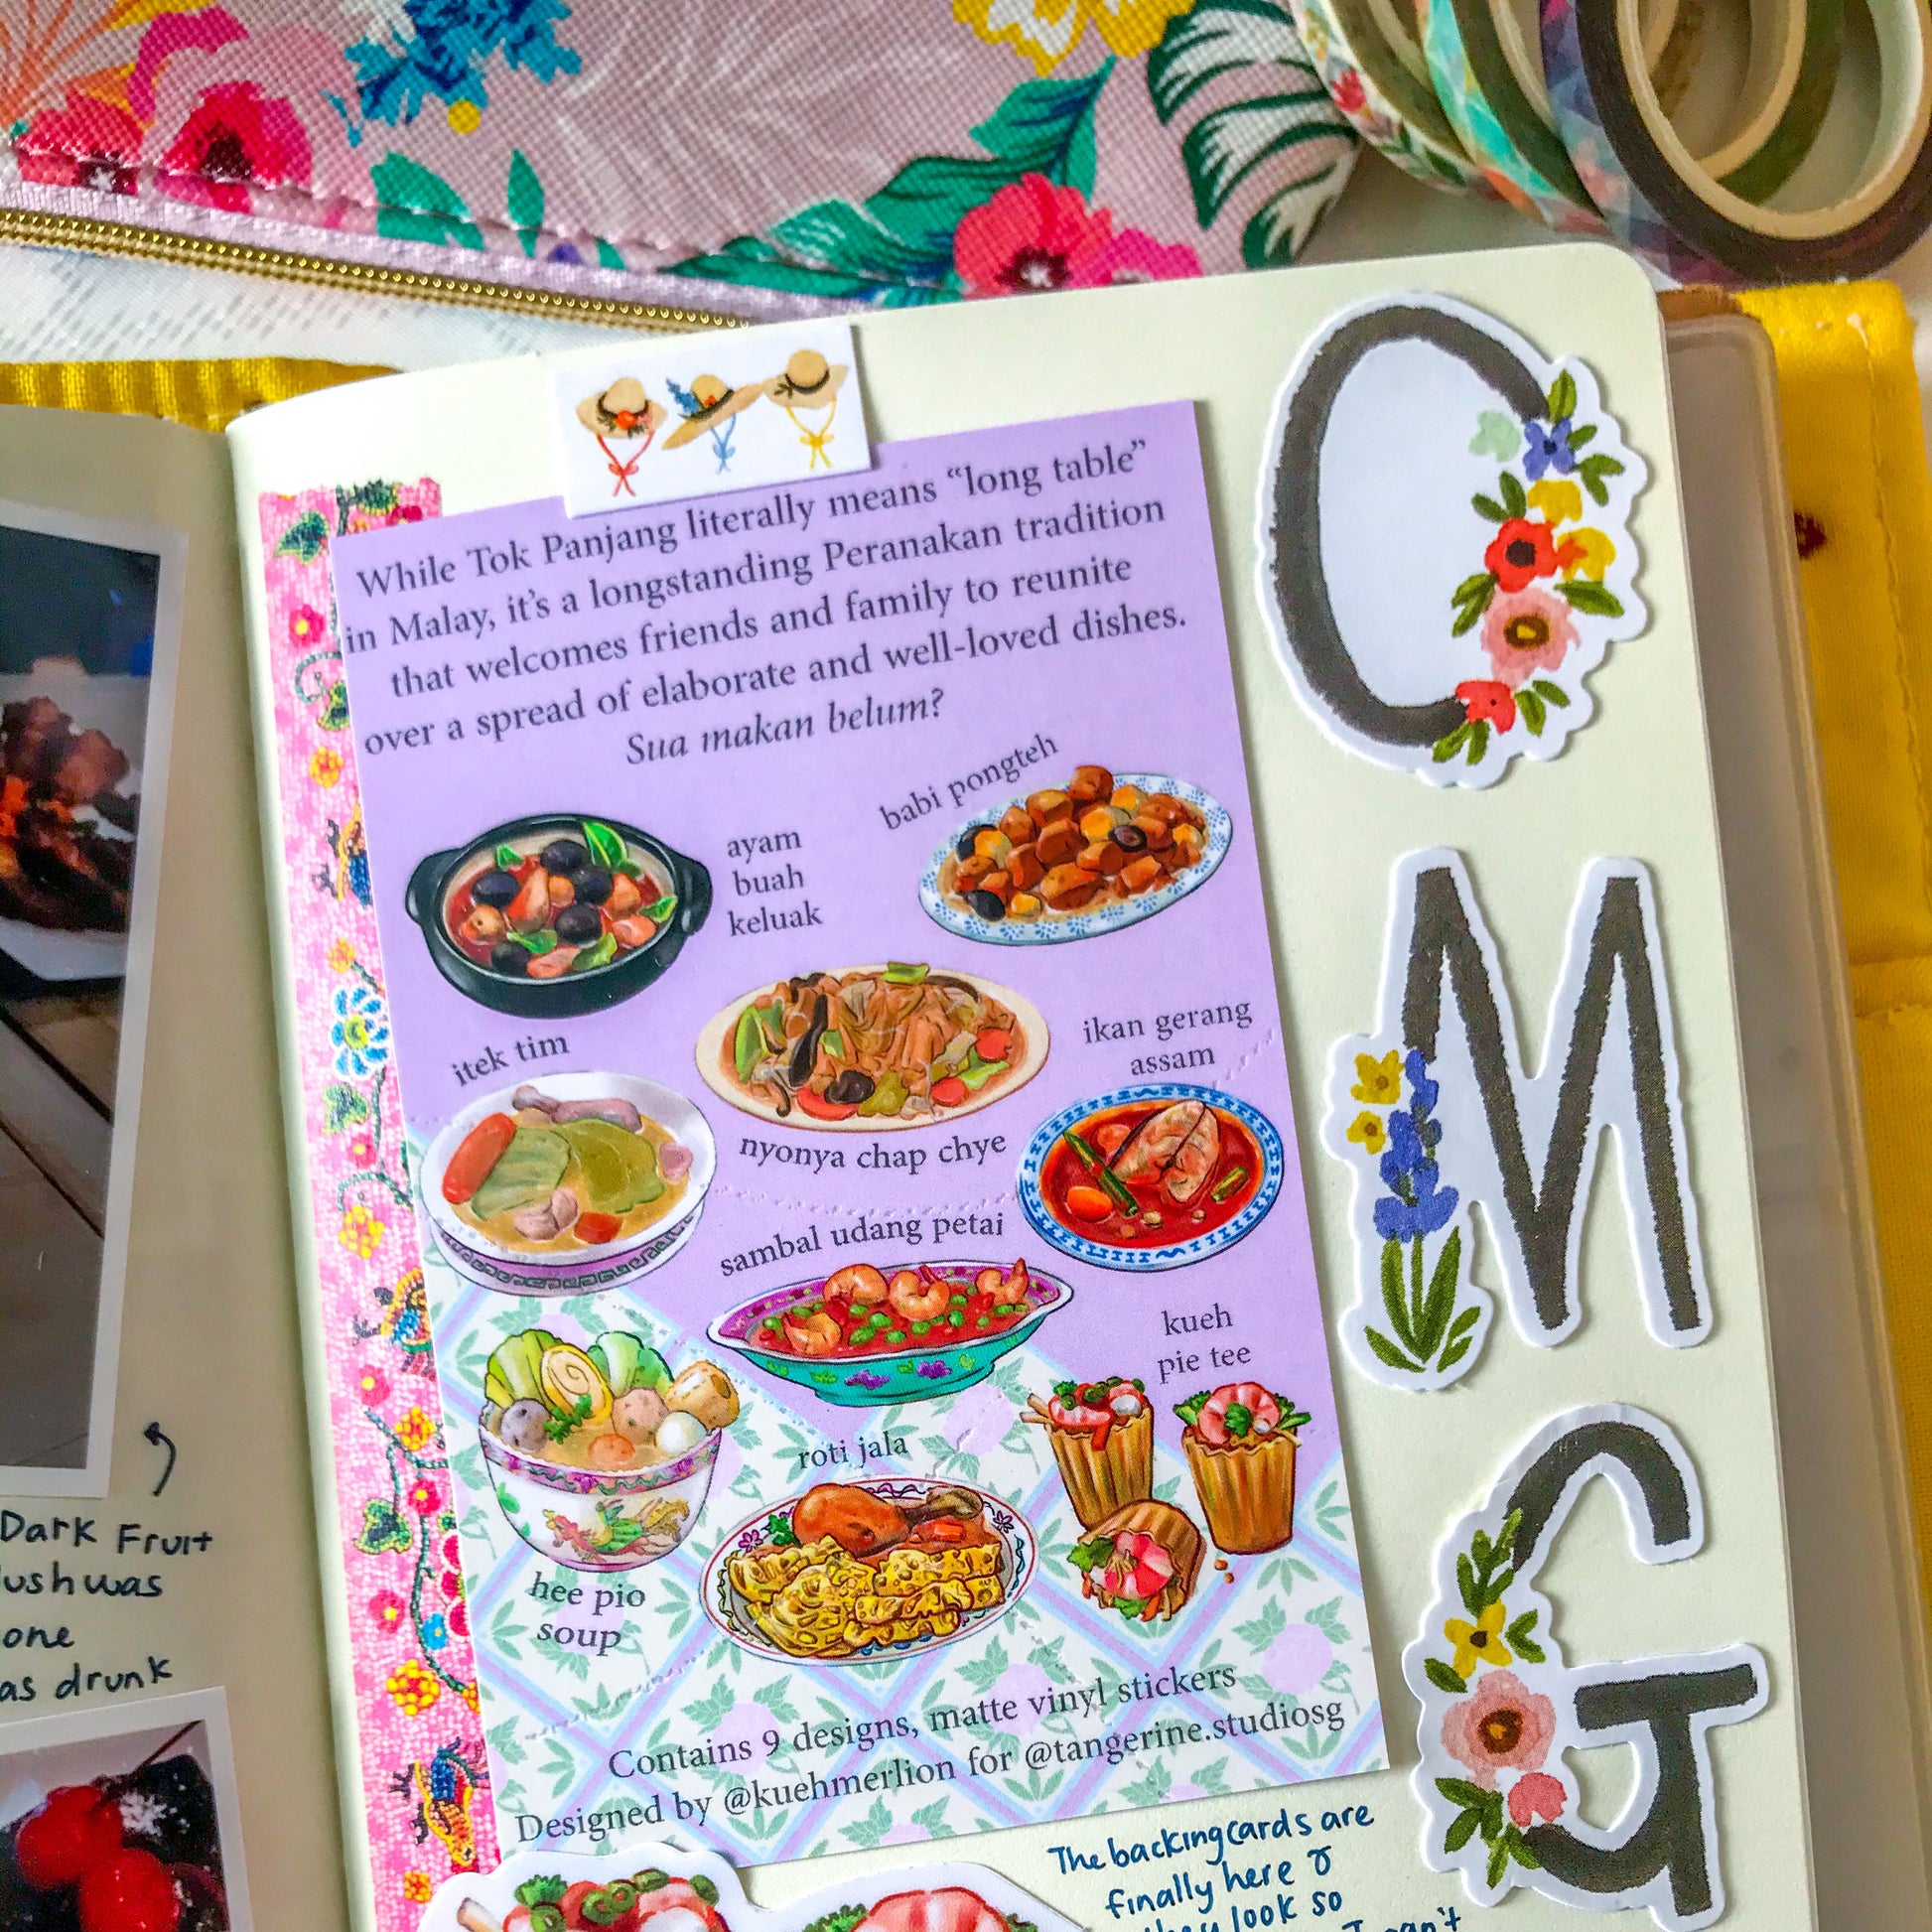 While Tok Panjang literally means “long table”
in Malay, it’s a longstanding Peranakan tradition
that welcomes friends and family to reunite
over a spread of elaborate and well-loved dishes.
Sua makan belum?
babi pongteh
ayam
buah
keluak
itek tim
ikan gerang
assam
nyonya chap chye
sambal udang petai
kueh
pie tee
roti jala
hee pio
soup
Contains 9 designs, matte vinyl stickers
Designed by @kuehmerlion for @tangerine.studiosg
O
M
G
Dark Fruit
was
one
as drunk
The backing cards are
finally here
they look so
can't